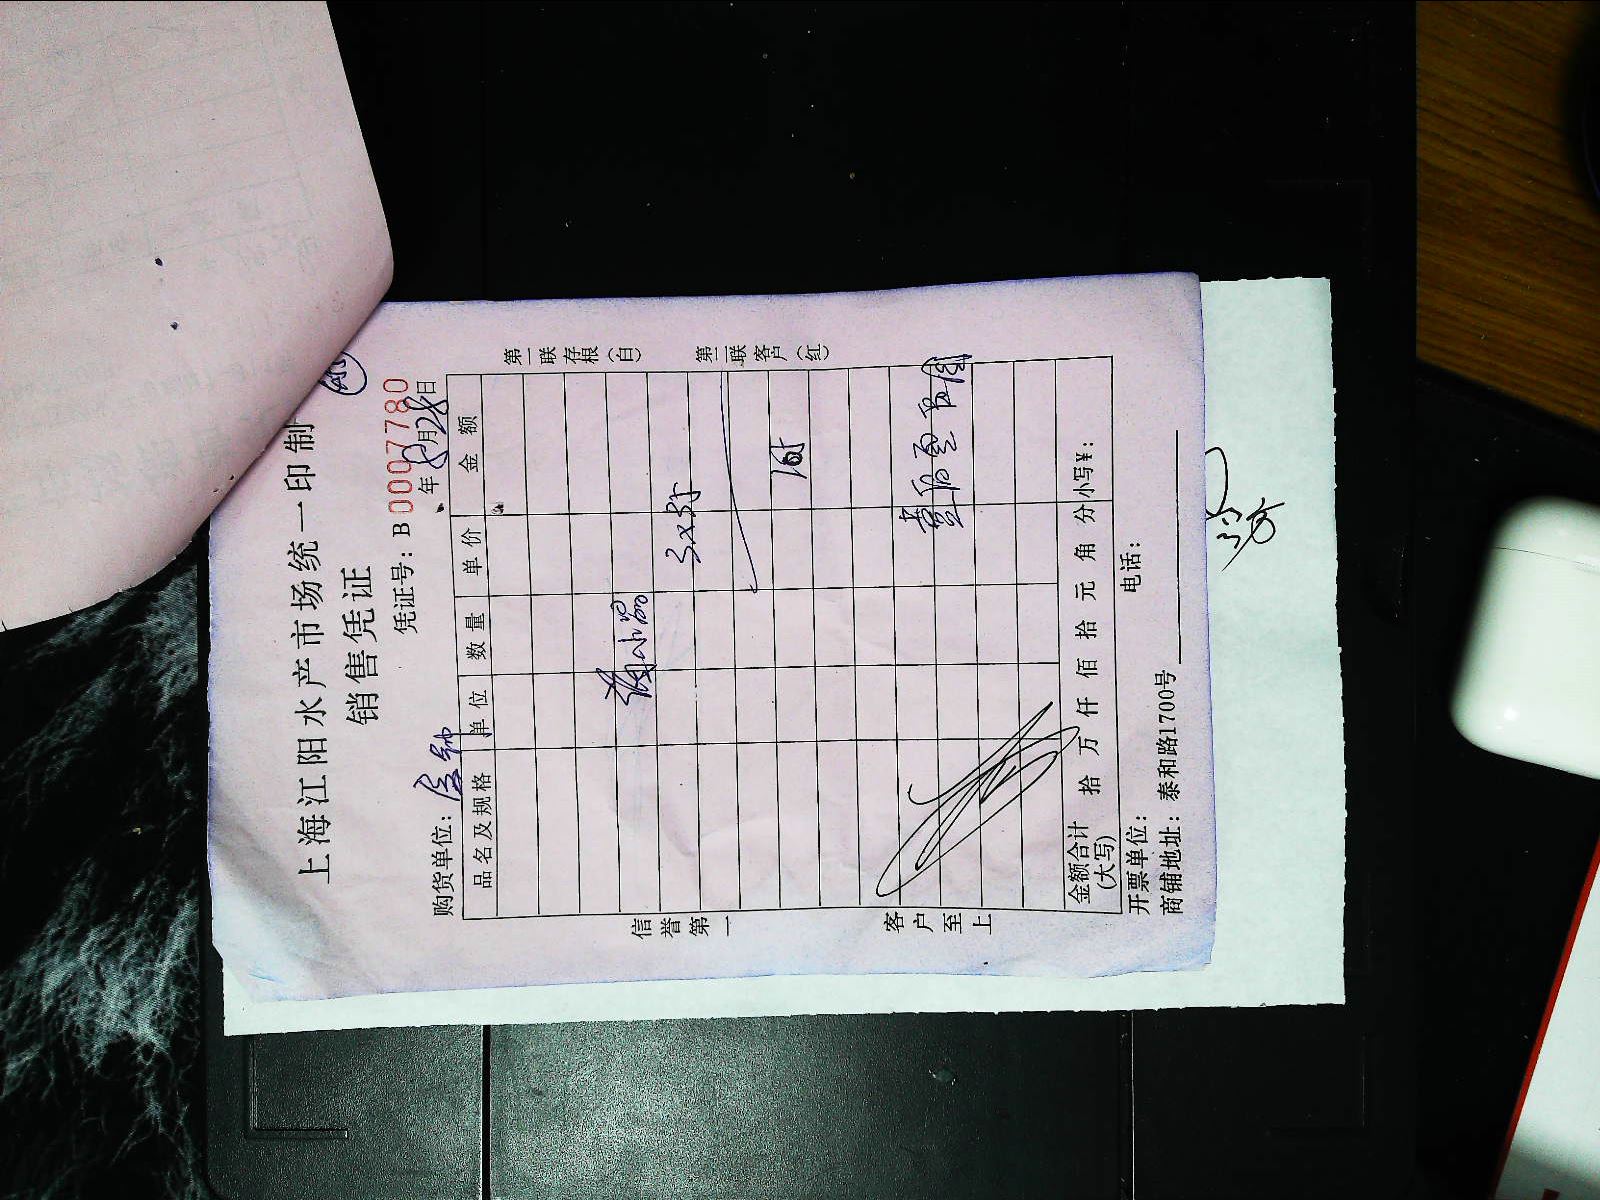 上海江阳水产市场统一印制
销售凭证
凭证号：B 0007780
购货单位：
年8月28日
品名及规格 单位 数量 单价 金额
3×55
165
金额合计(大写) 拾 万 仟 佰 拾 元 角 分 小写¥：
开票单位： 电话：
商铺地址：泰和路1700号
信誉第一 客户至上
第一联存根（白） 第二联客户（红）